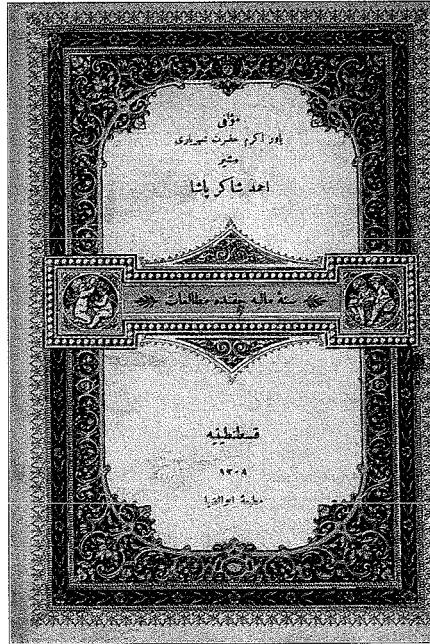 مؤلفی
یاور اکرم حضرت شهریاری
مشیر
احمد شاکر پاشا
سنهٔ مالیه حقنده مطالعات
قسطنطینیه
۱۳۰۸
مطبعهٔ ابوالضیا